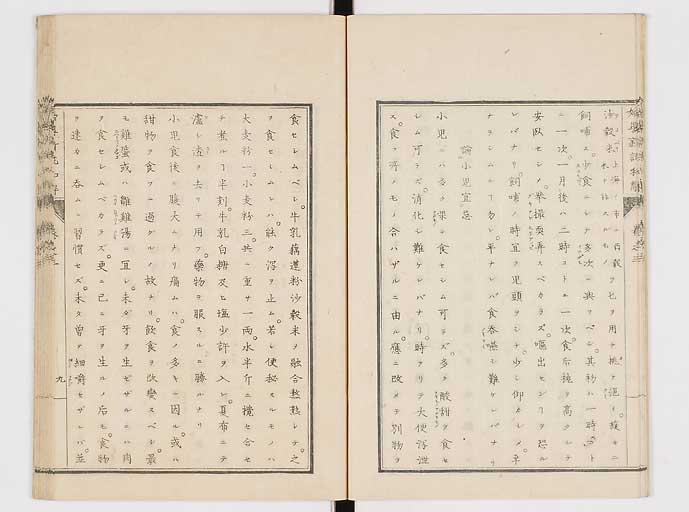 飼哺ス少食ニシテ多次ニ與フベシ其初ハ一時ゴト
ニ一次一月後ハ二時コトニ一次食后褥ヲ高クシテ
安臥セシメ擧揺突弄スベカラズ嘔出センヿヲ恐ル
レバナリ飼哺ノ時宜ク児頭ヲシテ少シ仰カシメ平
ナラシムル勿レ平ナレバ食呑嚥シ難ケレバナリ
論小児宜忌
小児ニハ多ク菓ヲ食セシム可ラズ多ク酸甜ヲ食セ
シム可ラズ消化シ難ケレバナリ時アリテ大便泻泄
ス食フ所ノモノ合ハザルニ由ル應ニ改メテ別物ヲ
食セシムベシ牛乳藕蓮粉沙穀米ヲ融合熬熟シテ之
ヲ食セシムレハ能ク泻ヲ止ム若シ便秘スルモノハ
大麦粉一小麦粉三共ニ重サ一兩水半斤ニ攪セ合セ
テ煮ル丁半刻牛乳白糖及ヒ塩少許ヲ入レ夏布ニテ
濾シ渣ヲ去リテ用フ藥物ヲ服スルニ勝ルナリ
小児食後ニ腹大ムナリ痛ムハ食ノ多キニ因ル或ハ
甜物ヲ食フニ過グルノ故ナリ飲食ヲ改變スベシ最
モ雞蛋或ハ雛雞湯ニ宜シ未ダ牙ヲ生ゼザルニハ肉
ヲ食セシムベカラズ更ニ已ニ牙ヲ生ルノ后モ食物
ヲ速カニ呑ムニ習慣セズ未タ曽テ細嚼セザレバ並
九